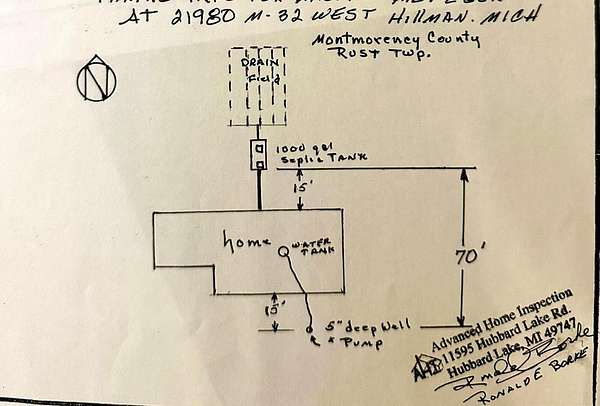 AT 21980 M-32 WEST HILLMAN. MICH
Montmorency County
RUST Twp.
N
DRAIN
Field
1000 gal
Septic TANK
15'
home
WATER
TANK
70'
15'
5" deep Well
& Pump
Advanced Home Inspection
11595 Hubbard Lake Rd.
Hubbard Lake, MI 49747
AHI
RONALD E BORKE